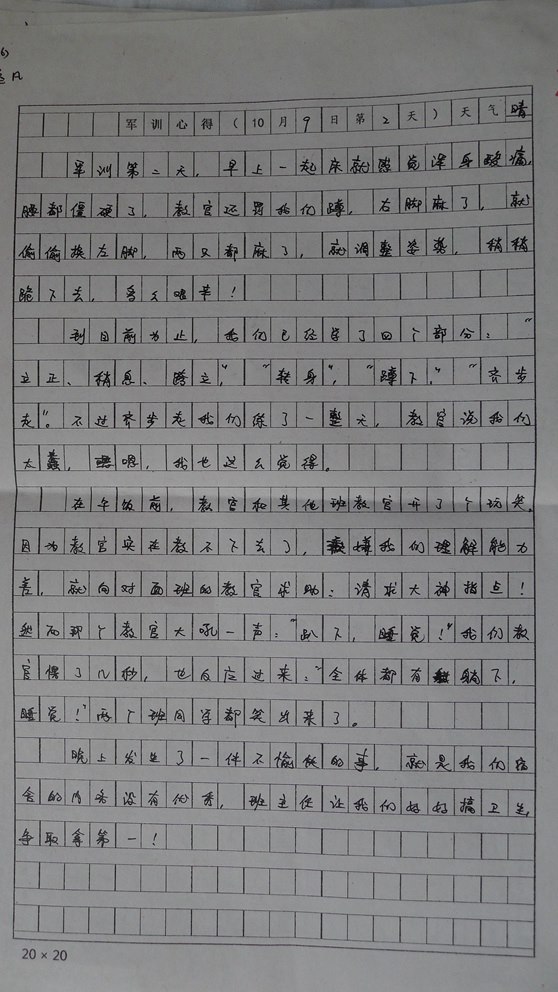 6)
凡
军训心得(10月9日第2天)天气晴
军训第二天,早上一起床就感觉浑身酸痛,
腰都僵硬了,教官还罚我们蹲,右脚麻了,就
偷偷换左脚,两只都麻了,就调整姿势,稍稍
跪下去,多么艰辛!
到目前为止,我们已经学了四个部分:“
立正、稍息、跨立”“转身”,“蹲下”“齐步
走”。不过齐步走我们练了一整天,教官说我们
太蠢,嗯嗯,我也这么觉得。
在午饭前,教官和其他班教官开了个玩笑,
因为教官实在教不下去了,嫌我们的理解能力
差,就向对面班的教官求助:请求大神指点!
然而那个教官大吼一声:“趴下,睡觉!”我们教
官愣了几秒,也反应过来:“全体都有躺下,
睡觉!”两个班同学都笑出来了。
晚上发生了一件不愉快的事,就是我们宿
舍的内务没有优秀,班主任让我们好好搞卫生,
争取拿第一!
20×20